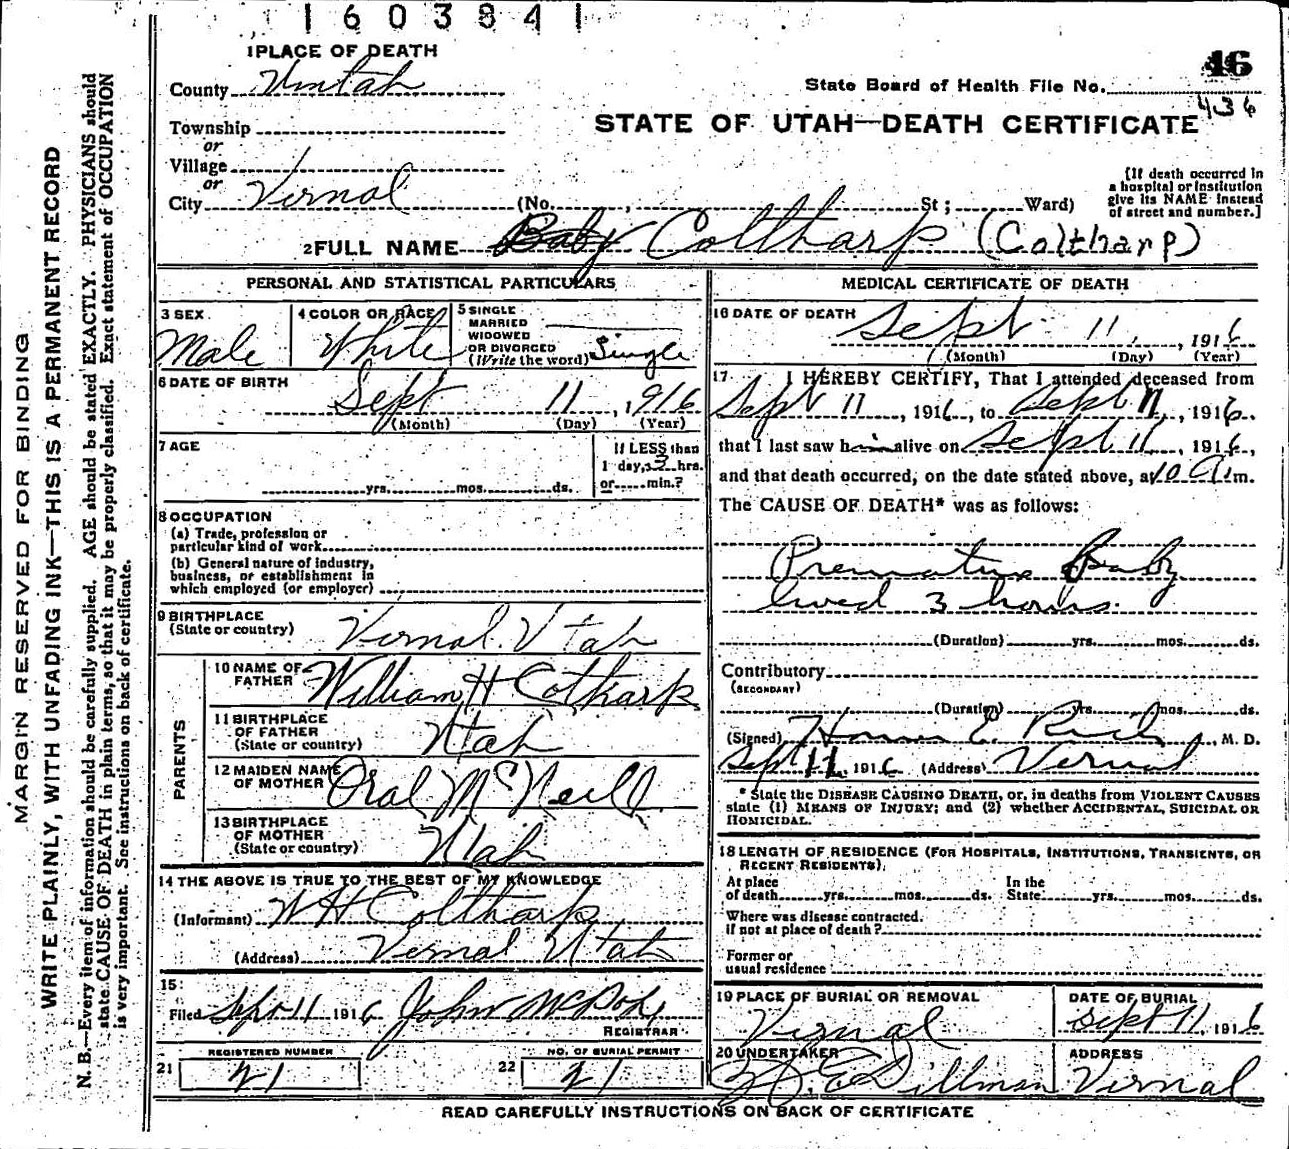 1603841
46
State Board of Health File No. 436
STATE OF UTAH—DEATH CERTIFICATE
1 PLACE OF DEATH
County Uintah
Township
or
Village
or
City Vernal (No. , St; Ward)
[If death occurred in
a hospital or institution
give its NAME instead
of street and number.]
2 FULL NAME Baby Coltharp (Coltharp)
PERSONAL AND STATISTICAL PARTICULARS
3 SEX
Male
4 COLOR OR RACE
White
5 SINGLE
MARRIED
WIDOWED
OR DIVORCED
(Write the word) Single
6 DATE OF BIRTH
Sept 11, 1916
(Month) (Day) (Year)
7 AGE
yrs. mos. ds.
If LESS than
1 day, 3 hrs.
or min.?
8 OCCUPATION
(a) Trade, profession or
particular kind of work
(b) General nature of industry,
business, or establishment in
which employed (or employer)
9 BIRTHPLACE
(State or country) Vernal. Utah
PARENTS
10 NAME OF
FATHER William H Coltharp
11 BIRTHPLACE
OF FATHER
(State or country) Utah
12 MAIDEN NAME
OF MOTHER Oral McNeill
13 BIRTHPLACE
OF MOTHER
(State or country) Utah
14 THE ABOVE IS TRUE TO THE BEST OF MY KNOWLEDGE
(Informant) W H Coltharp
(Address) Vernal Utah
15
Filed Sept 11 1916 John
REGISTRAR
21 REGISTERED NUMBER
21
22 NO. OF BURIAL PERMIT
21
MEDICAL CERTIFICATE OF DEATH
16 DATE OF DEATH
Sept 11, 1916
(Month) (Day) (Year)
17 I HEREBY CERTIFY, That I attended deceased from
Sept 11, 1916, to Sept 11, 1916.
that I last saw him alive on Sept 11, 1916,
and that death occurred, on the date stated above, at 10 A m.
The CAUSE OF DEATH* was as follows:
Premature Baby
lived 3 hours.
(Duration) yrs. mos. ds.
Contributory
(SECONDARY)
(Duration) yrs. mos. ds.
(Signed) E. , M. D.
Sept 11, 1916 (Address) Vernal
* State the DISEASE CAUSING DEATH, or, in deaths from VIOLENT CAUSES
state (1) MEANS OF INJURY; and (2) whether ACCIDENTAL, SUICIDAL OR
HOMICIDAL.
18 LENGTH OF RESIDENCE (FOR HOSPITALS, INSTITUTIONS, TRANSIENTS, OR
RECENT RESIDENTS).
At place
of death yrs. mos. ds.
In the
State yrs. mos. ds.
Where was disease contracted.
if not at place of death?
Former or
usual residence
19 PLACE OF BURIAL OR REMOVAL
Vernal
DATE OF BURIAL
Sept 11, 1916
20 UNDERTAKER
E Dillman
ADDRESS
Vernal
READ CAREFULLY INSTRUCTIONS ON BACK OF CERTIFICATE
MARGIN RESERVED FOR BINDING
WRITE PLAINLY, WITH UNFADING INK—THIS IS A PERMANENT RECORD
N. B.—Every item of information should be carefully supplied. AGE should be stated EXACTLY. PHYSICIANS should
state CAUSE OF DEATH in plain terms, so that it may be properly classified. Exact statement of OCCUPATION
is very important. See instructions on back of certificate.